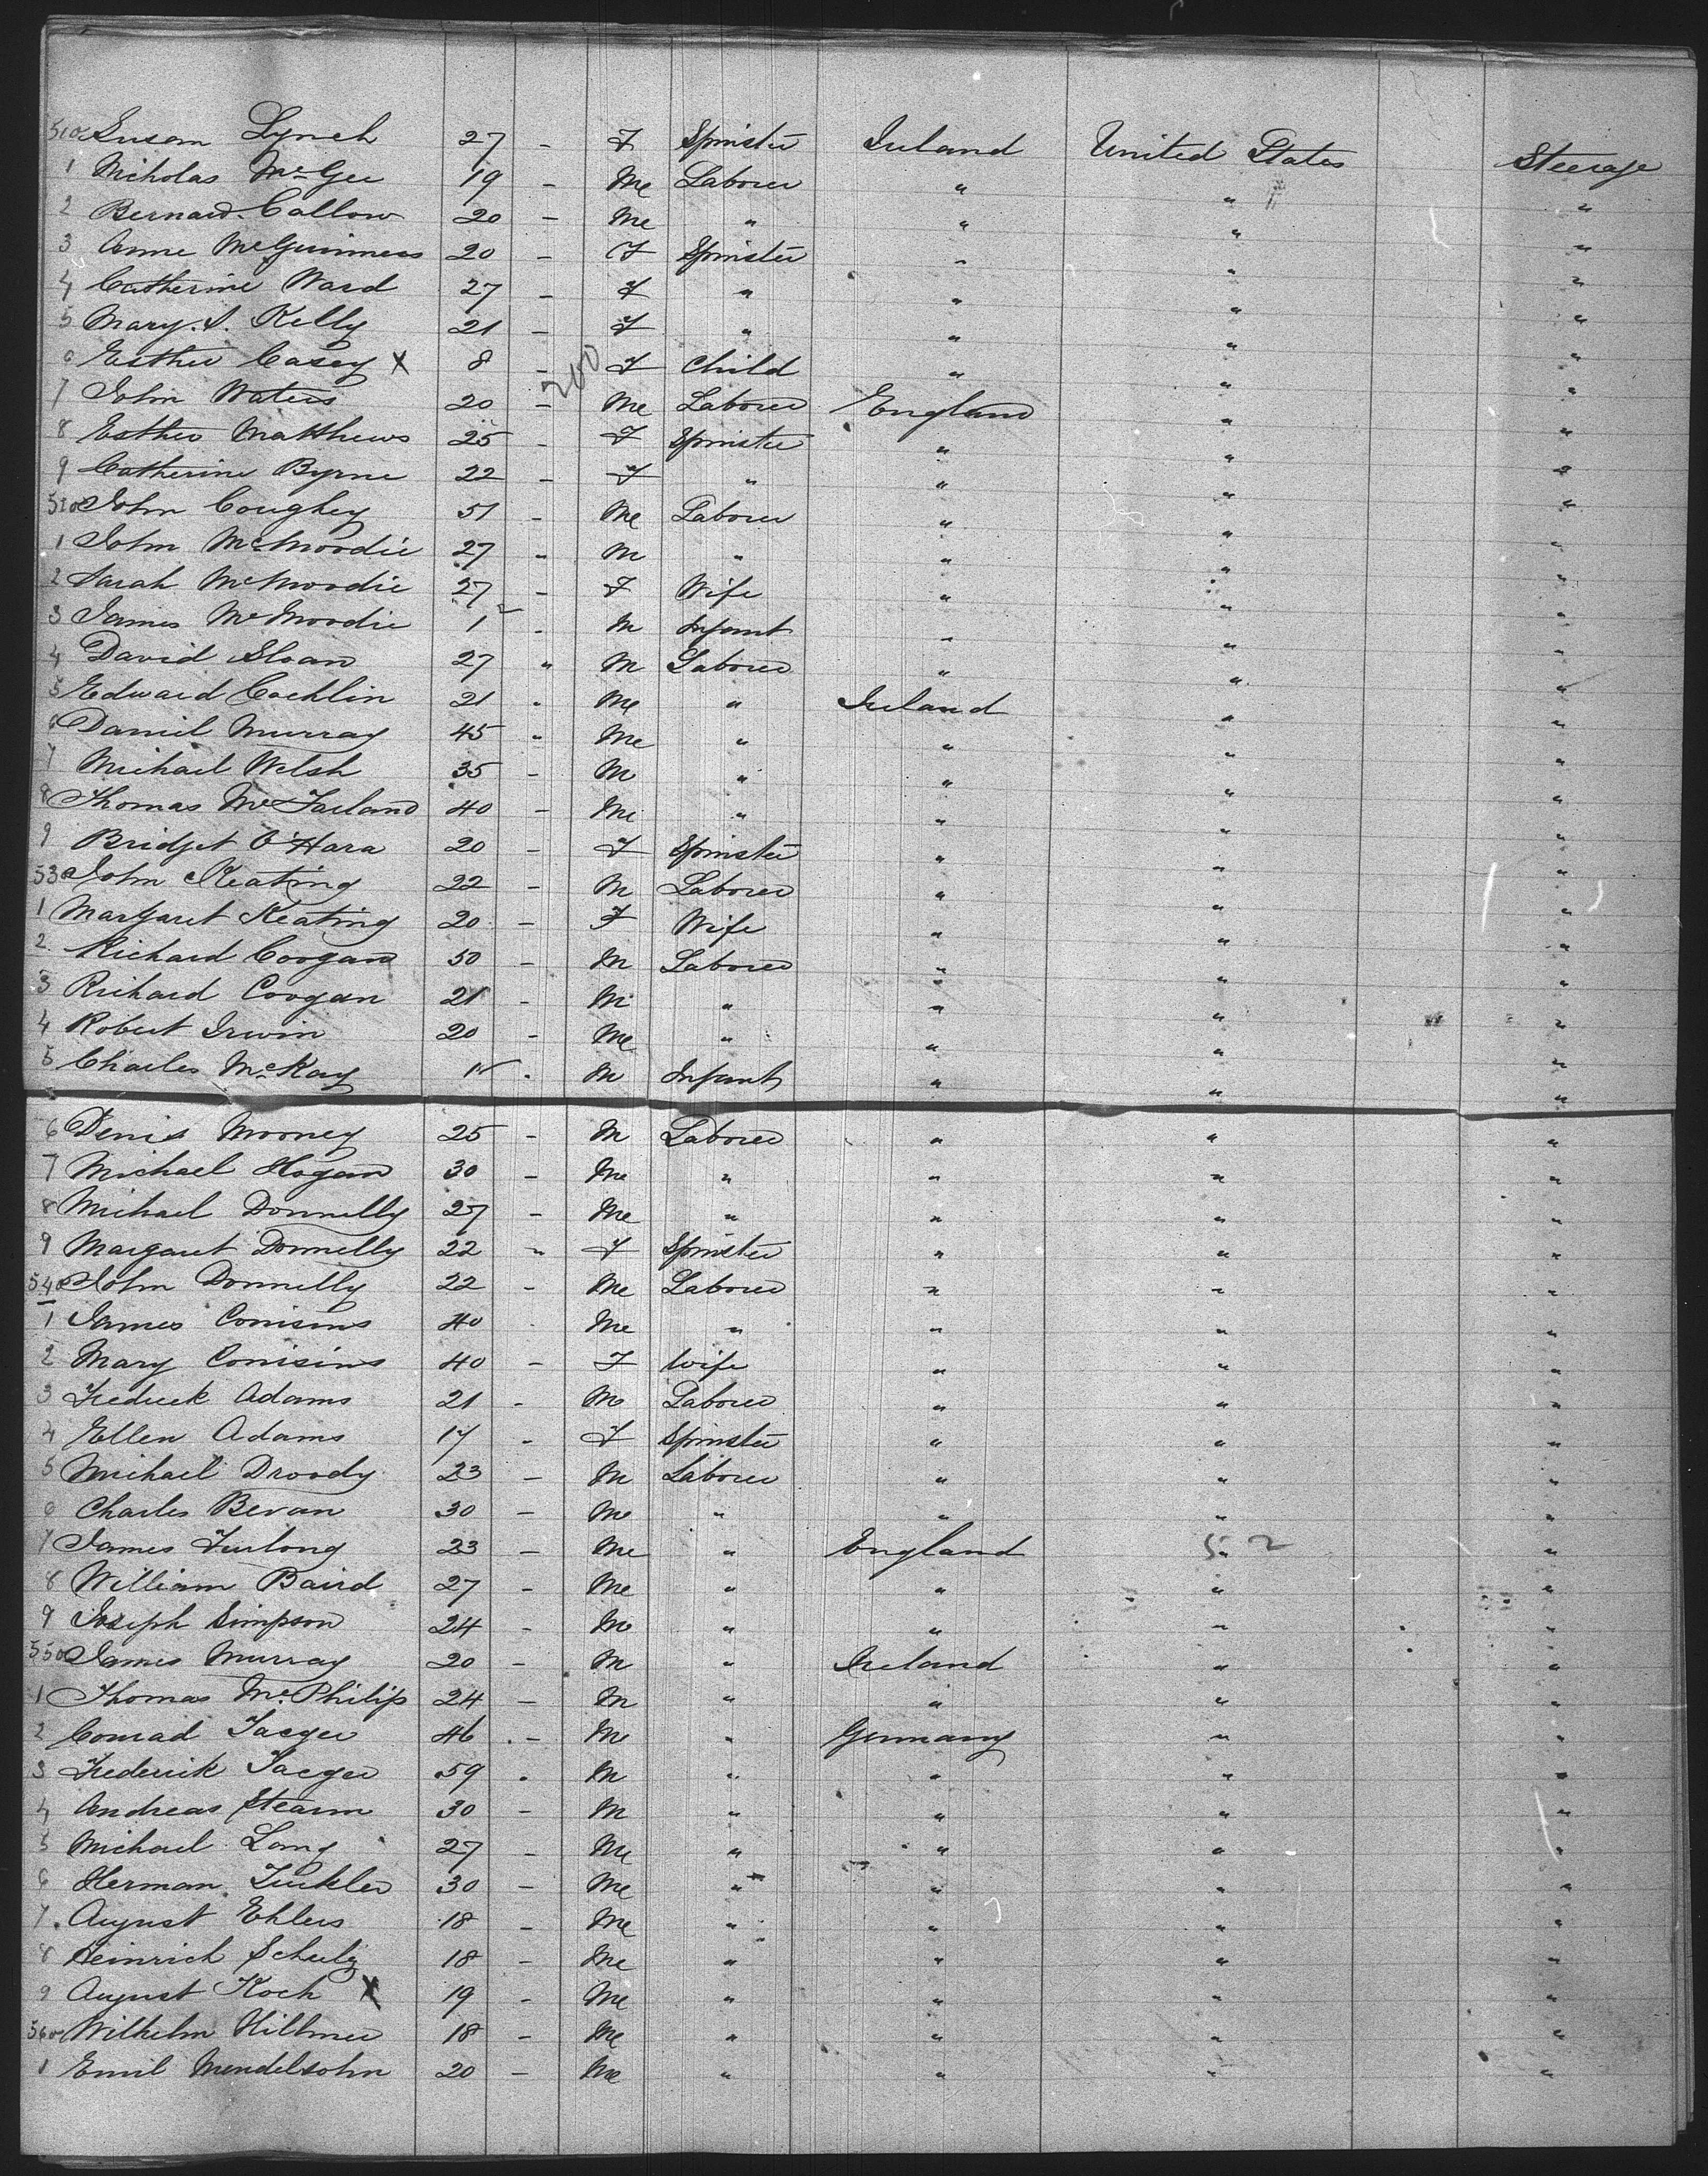 510 Susan Lynch 27 - F Spinster Ireland United States Steerage
1 Nicholas McGee 19 - Me Laborer " " "
2 Bernard Callow 20 - Me " " " "
3 Anne McGuinness 20 - F Spinster " " "
4 Catherine Ward 27 - F " " " "
5 Mary S. Kelly 21 - F " " " "
6 Esther Casey X 8 - F Child " " "
200
7 John Waters 20 - Me Laborer England " "
8 Esther Matthews 25 - F Spinster " " "
9 Catherine Byrne 22 - F " " " "
520 John Coughey 51 - Me Laborer " " "
1 John McMoodie 27 " M " " " "
2 Sarah McMoodie 27 - F Wife " " "
3 James McMoodie 1 - M Infant " " "
4 David Sloan 27 " M Laborer " " "
5 Edward Cochlin 21 " Me " Ireland " "
6 Daniel Murray 45 " Me " " " "
7 Michael Welsh 35 - M " " " "
8 Thomas McFarland 40 - M " " " "
9 Bridget O'Hara 20 - F Spinster " " "
530 John Keating 22 - M Laborer " " "
1 Margaret Keating 20 - F Wife " " "
2 Richard Coogan 50 - M Laborer " " "
3 Richard Coogan 21 - M " " " "
4 Robert Irwin 20 - Me " " " "
5 Charles McKay M Infant " " "
6 Denis Mooney 25 - M Laborer " " "
7 Michael Hogan 30 - Me " " " "
8 Michael Donnelly 27 - Me " " " "
9 Margaret Donnelly 22 " F Spinster " " "
540 John Donnelly 22 - Me Laborer " " "
1 James Conisins 40 - Me " " " "
2 Mary Conisins 40 - F Wife " " "
3 Frederick Adams 21 - M Laborer " " "
4 Ellen Adams 17 - F Spinster " " "
5 Michael Droody 23 - M Laborer " " "
6 Charles Bevan 30 - Me " " " "
7 James Furlong 23 - Me " England " 52 "
8 William Baird 27 - Me " " " "
9 Joseph Simpson 24 - M " " " "
550 James Murray 20 - M " Ireland " "
1 Thomas McPhilip 24 - M " " " "
2 Conrad Jaeger 46 - Me " Germany " "
3 Frederick Jaeger 59 - M " " " "
4 Andreas Stearm 30 - M " " " "
5 Michael Lang 27 - Me " " " "
6 Herman 30 - Me " " " "
7 August Ehlers 18 - Me " " " "
8 Heinrich Schulz 18 - Me " " " "
9 August Koch X 19 - Me " " " "
560 Wilhelm Hillmer 18 - Me " " " "
1 Emil Mendelsohn 20 - Me " " " "